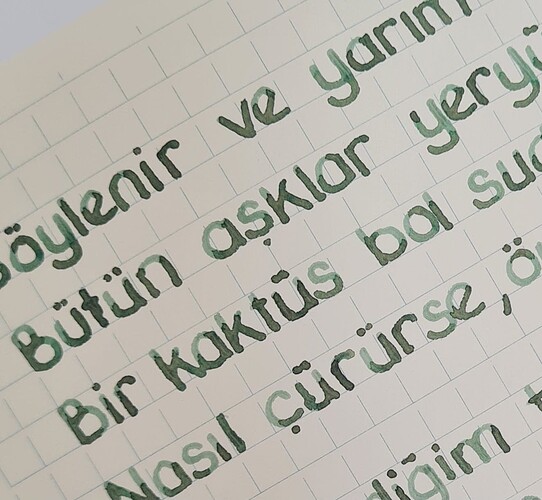 Söylenir ve yarım
Bütün aşklar yeryü
Bir kaktüs bol sud
Nasıl çürürse, ö
diğim